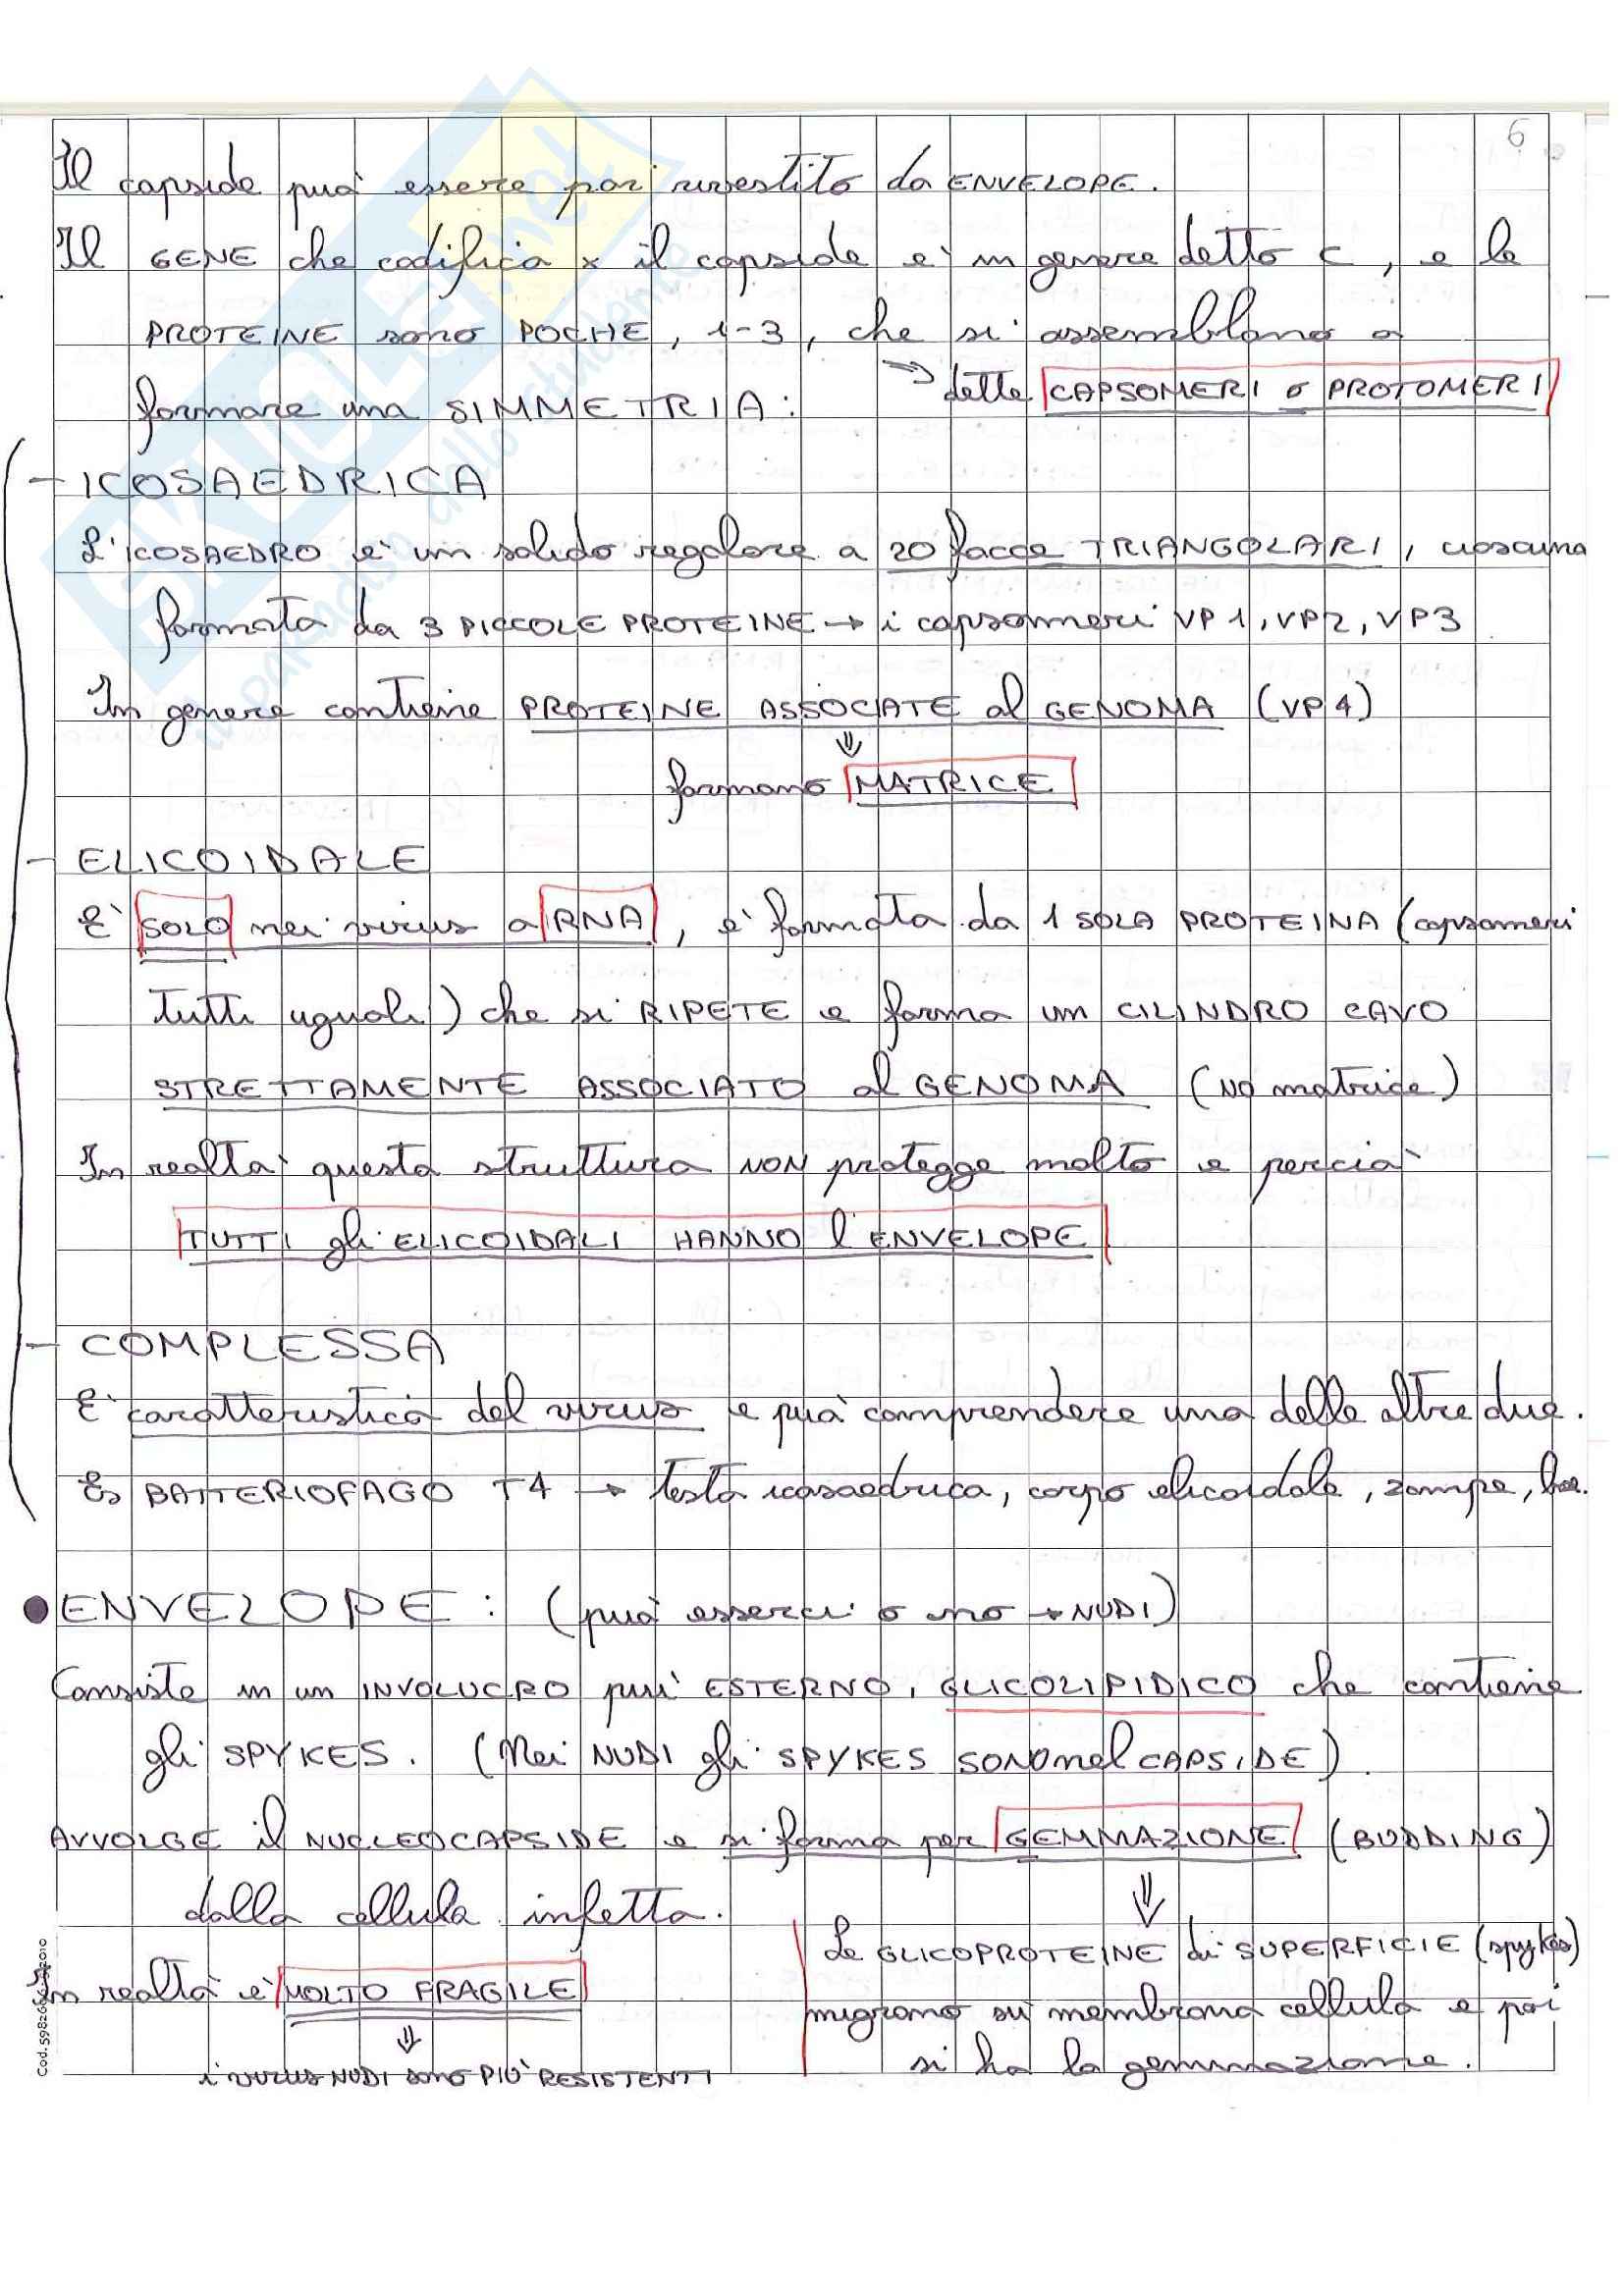 6
Il capside può essere poi rivestito da ENVELOPE.
Il GENE che codifica x il capside è in genere detto C, e le
PROTEINE sono POCHE, 1-3, che si assemblano a
⇒ dette CAPSOMERI o PROTOMERI
formare una SIMMETRIA:
- ICOSAEDRICA
L'ICOSAEDRO è un solido regolare a 20 facce TRIANGOLARI, ciascuna
formata da 3 PICCOLE PROTEINE → i capsomeri VP1, VP2, VP3
In genere contiene PROTEINE ASSOCIATE al GENOMA (VP4)
⇓
formano MATRICE
- ELICOIDALE
E' SOLO nei virus a RNA, è formata da 1 SOLA PROTEINA (capsomeri
tutti uguali) che si RIPETE e forma un CILINDRO CAVO
STRETTAMENTE ASSOCIATO al GENOMA (NO matrice)
In realtà questa struttura NON protegge molto e perciò
TUTTI gli ELICOIDALI HANNO l'ENVELOPE
- COMPLESSA
E' caratteristica del virus e può comprendere una delle altre due.
Es BATTERIOFAGO T4 → testa icosaedrica, corpo elicoidale, zampe,
● ENVELOPE : (può esserci o no → NUDI)
Consiste in un INVOLUCRO più ESTERNO, GLICOLIPIDICO che contiene
gli SPYKES. (Nei NUDI gli SPYKES SONO nel CAPSIDE)
AVVOLGE il NUCLEOCAPSIDE e si forma per GEMMAZIONE (BUDDING)
dalla cellula infetta.
⇓
Le GLICOPROTEINE di SUPERFICIE (spykes)
migrano su membrana cellula e poi
si ha la gemmazione.
In realtà è MOLTO FRAGILE
⇓
i virus NUDI sono PIÙ RESISTENTI
SKUOLA.net
il paradiso dello studente